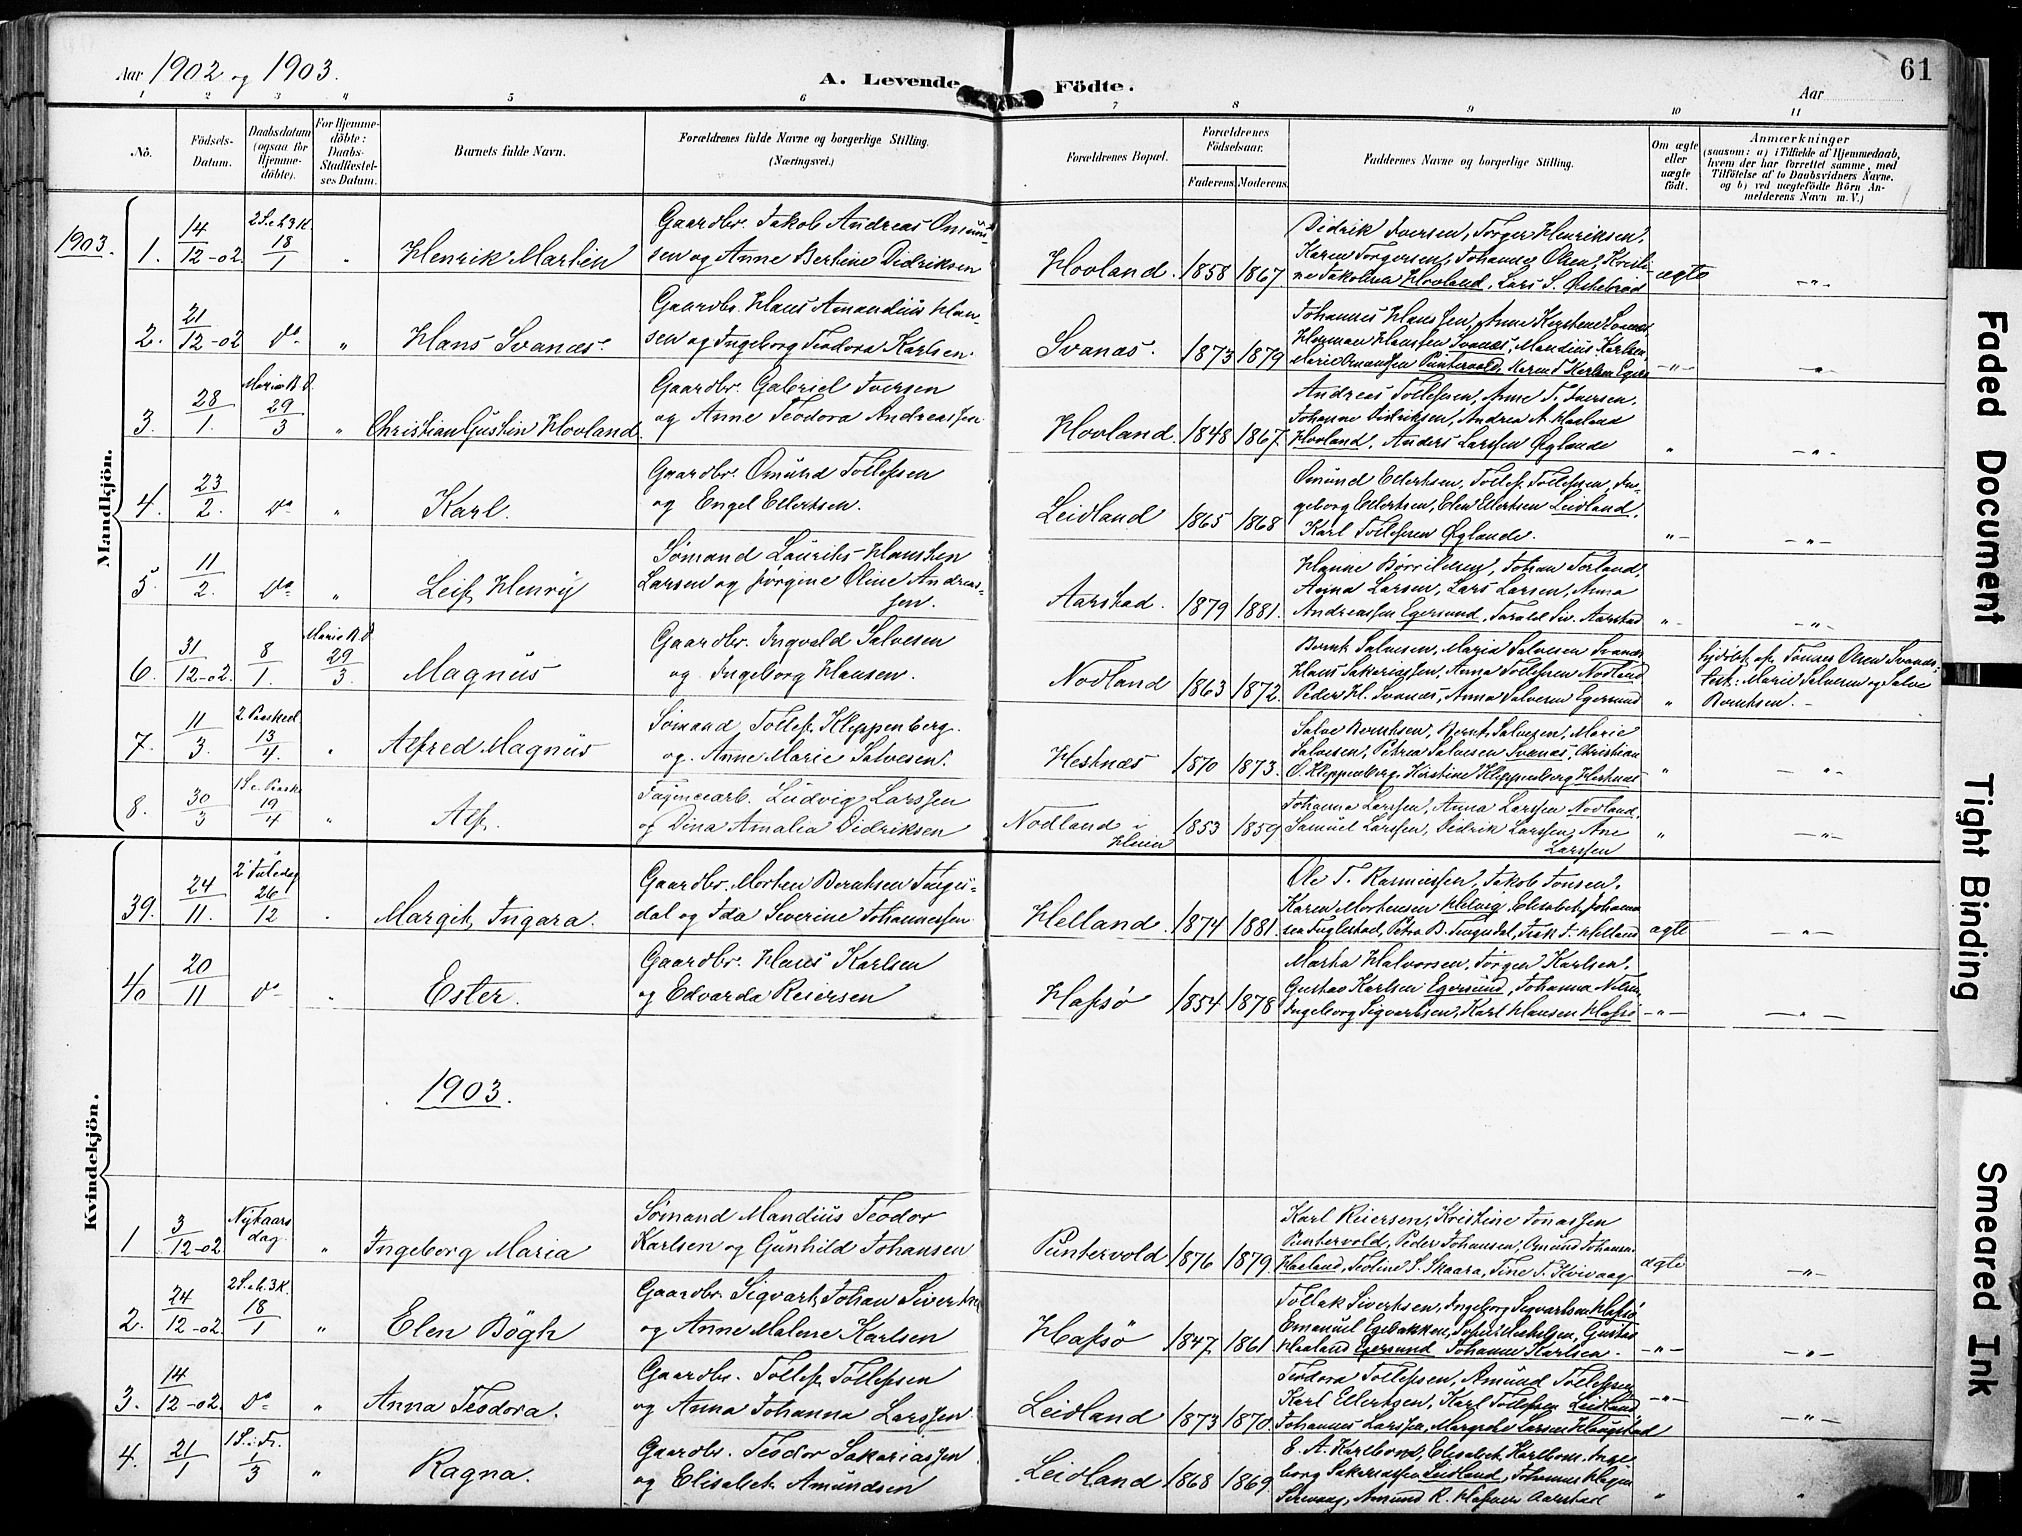 Aar 1902 og 1903.
A. Levende Födte.
Aar
61
1 2 3 4 5 6 7 8 9 10 11
Nö.
Födsels-Datum.
Daabsdatum (ogsaa for Hjemme-döbte).
For Hjemme-döbte: Daabs-Stadfæstel-ses Datum.
Barnets fulde Navn.
Forældrenes fulde Navne og borgerlige Stilling.
(Næringsvei.)
Forældrenes Bopæl.
Forældrenes Födselsaar.
Faderens. Moderens.
Faddernes Navne og borgerlige Stilling.
Om ægte eller uægte födt.
Anmærkninger
(saasom: a) i Tilfælde af Hjemmedaab,
hvem der har forrettet samme, med
Tilföielse af to Daabsvidners Navne,
og b) ved uægtefödte Börn An-
melderens Navn m. V.)
Mandkjön.
1903.
1. 14/12-02 2 S. e. h. 3 K. 18/1 " Henrik Martin
Gaardbr. Jakob Andreas Omund-
sen og Anne Bertine Didriksen
Hovland. 1858 1867
Didrik Iversen, Torger Henriksen,
Karen Torgersen, Johannes Olsen, Kristi-
ne Jakobsen Hovland, Lars S.
ægte -"-
2. 21/12-02 do " Hans Svanæs.
Gaardbr. Hans Amandius Han-
sen og Ingeborg Teodora Karlsen.
Svanæs. 1873 1879
Johannes Hanssen, Anne Svanæs
Herman Hanssen Svanæs, Mandius Karlsen,
Marie Puntervold, Karen T. Karlsen Egers.
-"- "
3. 28/1. Maria B. D. 29/3 " Christian Gustin Hovland.
Gaardbr. Gabriel Iversen
og Anne Teodora Andreassen
Hovland. 1848 1867.
Andreas Tollefsen, Anne T. Iversen,
Johanne Didriksen, Andrea A. Hovland
Hovland. Anders Larssen Øglande
" -"-
4. 23/2. do " Karl.
Gaardbr. Omund Tollefsen
og Engel Ellertsen.
Leidland 1865 1868
Omund Ellertsen, Tollef Tollefsen, In-
geborg Ellertsen, Elen Ellertsen Leidland,
Karl Tollefsen Øglande.
"- -"-
5. 11/2. do " Leif Henry
Sømand Laurits Hanssen
Larsen og Jørgine Oline Andreas-
sen.
Aarstad. 1879 1881.
Hanne Johan Torland,
Anna Larsen, Lars Larsen, Anna
Andreassen Egersund, Aarstad
"- -"-
6. 31/12-02. 8/1. Maria B. D. 29/3. Magnus
Gaardbr. Ingvald Salvesen
og Ingeborg Hansen.
Nodland 1863 1872.
Bernt Salvesen, Maria Salvesen Svanæs,
Hans Sakariassen, Anna Tollefsen Nodland
Peder H. Svanæs, Anna Salvesen Egersund
"
hjdöbt af Tönnes Olsen Svanæs.
Test: Marie Salvesen og Salve
Berntsen. -
7. 11/3. 2 Paasked. 13/4. " Alfred Magnus
Sømand Tollef Kleppenberg.
og Anne Marie Salvesen.
Hestnæs 1870 1873.
Salve Berntsen, Bernt Salvesen, Marie
Salvesen, Petrea Salvesen Svanæs, Christian
O. Kleppenberg, Kirstine Kleppenberg Hestnæs
" - "-
8. 30/3 1 S. e. Paaske 19/4 " Alf.
Fayencearb. Ludvig Larssen
og Dina Amalia Didriksen
Nodland i 1853 1859
Johanna Larssen, Anna Larssen Nodland,
Samuel Larssen, Didrik Larssen, Ane
Larssen
" -"-
Kvindekjön.
39. 24/11. 2 Juledag 26/12 " Margit Ingara.
Gaardbr. Morten Berntsen
dal og Ida Severine Johannessen
Helland. 1874 1881.
Ole T. Rasmussen, Jakob Jonsen,
Karen Mortensen Elisabet Johanne-
sen Fuglestad, Petra B. Helland
ægte -"-
40 20/11 do " Ester.
Gaardbr. Hans Karlsen
og Edvarda Reiersen
Hafsø 1854 1878
Marta Halvorsen, Jörgen Karlsen,
Gustav Karlsen Egersund, Johanna Nilsen,
Ingeborg Sigvartsen, Karl Hansen Hafsø
-"- -"-
1903.
1 3/12-02 Nytaarsdag " Ingeborg Maria
Sømand Mandius Teodor
Karlsen og Gunhild Johansen
Puntervold 1876 1879.
Karl Reiersen, Kristine Jonassen
Puntervold, Peder Johansen, Omund Johansen
Haaland, Teoline S. Skaara, Tine T.
ægte -"-
2. 24/12-02. 2 S. e. h. 3 K. 18/1 " Elen Bögh
Gaardbr. Sigvart Johan Sivertsen
og Anne Malene Karlsen
Hafsø 1847 1861
Tollak Sivertsen, Ingeborg Sigvartsen Hafsø
Emanuel Egebakken, Gustav
Haaland Egersund Johanne Karlsen.
-"- -"-
3. 14/12-02. do " Anna Teodora.
Gaardbr. Tollef Tollefsen
og Anna Johanna Larssen
Leidland 1873 1870.
Teodora Tollefsen, Amund Tollefsen,
Karl Ellertsen, Karl Tollefsen Leidland
Johannes Larssen, Margrete Larsen Haugstad
-"- -"-
4. 21/1 1 S. i F. 1/3 " Ragna.
Gaardbr. Teodor Sakariassen
og Elisabet Amundsen
Leidland 1868 1869
E. A. Karlbom, Elisabet Karlbom, Inge-
borg Sakariassen Leidland, Johannes
Amund R. Aarstad
" "
Faded Document
Tight Binding
Smeared Ink